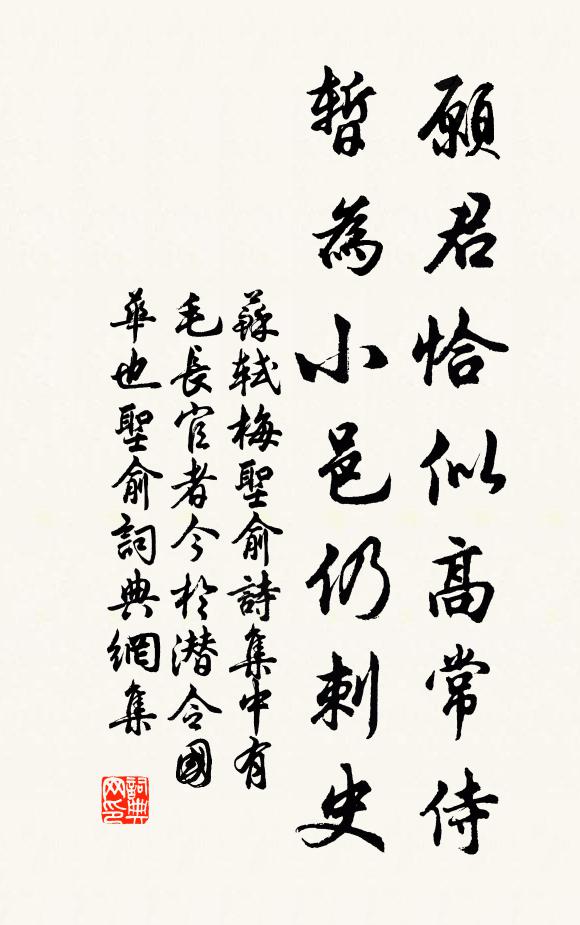 願君恰似高常侍
暫為小邑仍刺史
蘇軾梅聖俞詩集中有
毛長官者今於潛令國
華也聖俞詞典網集
詞典網印